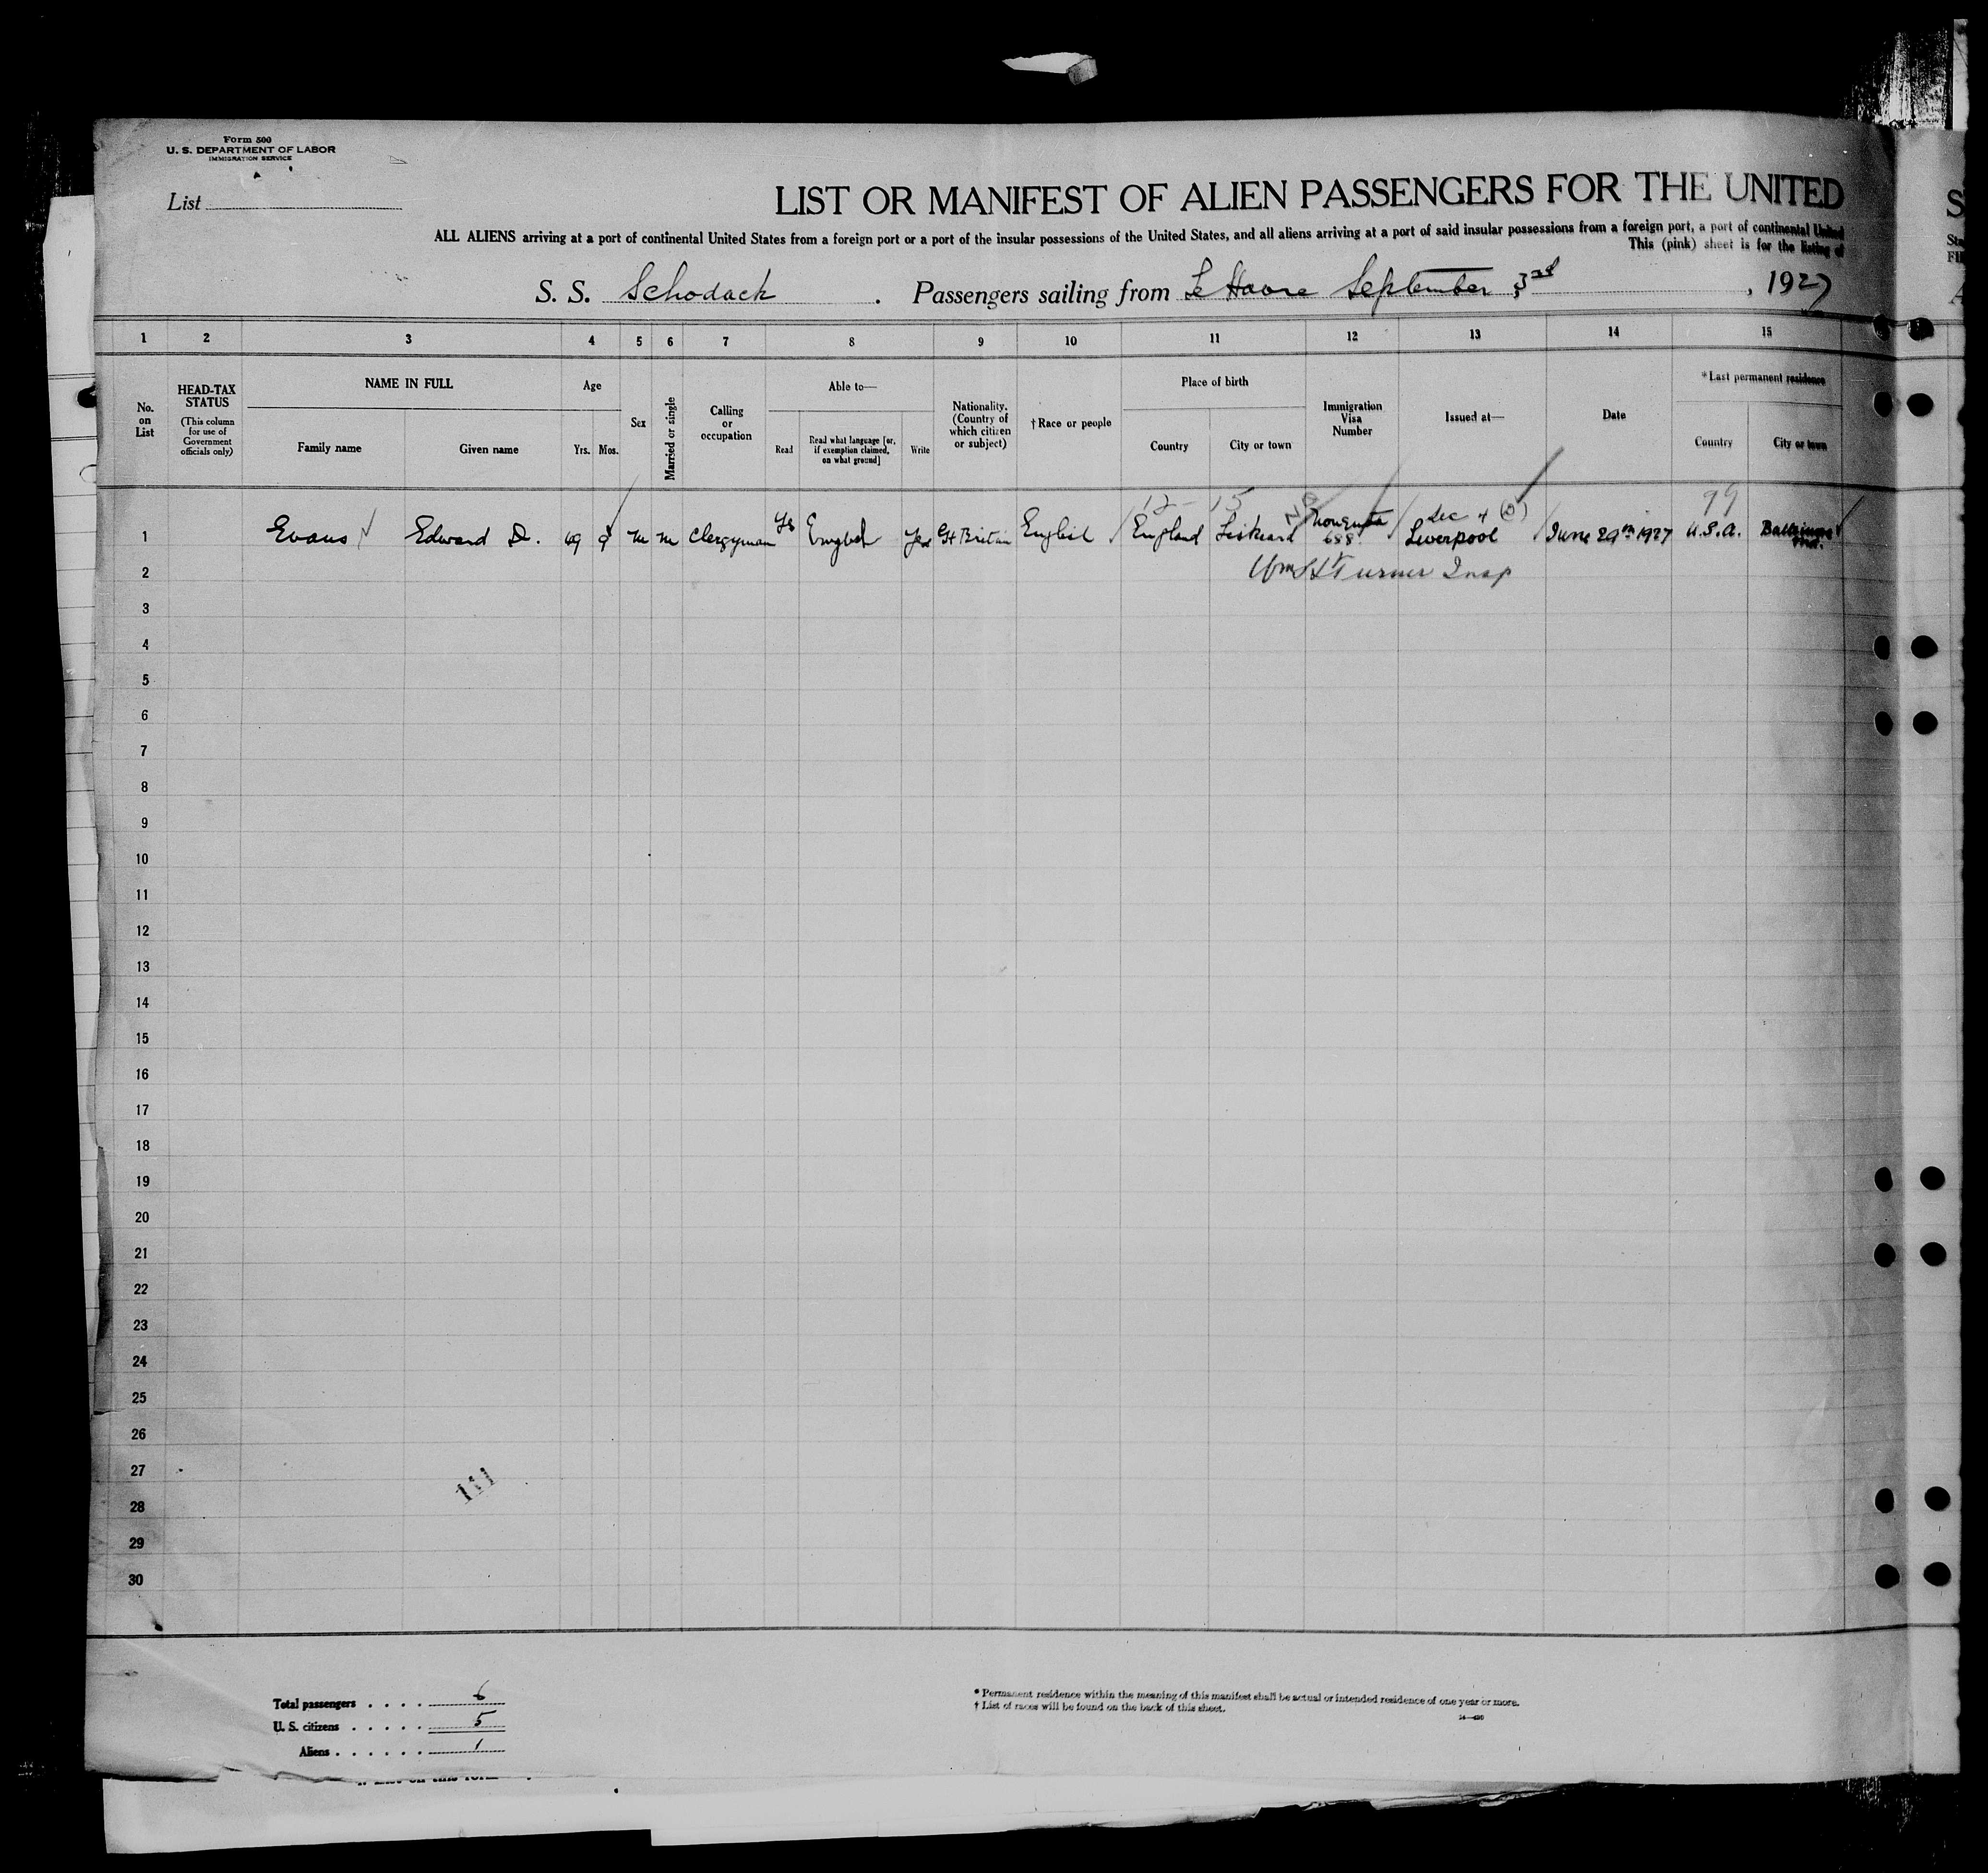 Form 500
U. S. DEPARTMENT OF LABOR
IMMIGRATION SERVICE
List
LIST OR MANIFEST OF ALIEN PASSENGERS FOR THE UNITED
ALL ALIENS arriving at a port of continental United States from a foreign port or a port of the insular possessions of the United States, and all aliens arriving at a port of said insular possessions from a foreign port, a port of continental United
This (pink) sheet is for the listing of
S. S. Schodack . Passengers sailing from Le Havre September 3rd , 1927
1 2 3 4 5 6 7 8 9 10 11 12 13 14 15
No. on List
HEAD-TAX STATUS
(This column for use of Government officials only)
NAME IN FULL
Family name
Given name
Age
Yrs. Mos.
Sex
Married or single
Calling or occupation
Able to—
Read
Read what language [or, if exemption claimed, on what ground]
Write
Nationality. (Country of which citizen or subject)
†Race or people
Place of birth
Country
City or town
Immigration Visa Number
Issued at—
Date
*Last permanent residence
Country
City or town
12-15 99
Sec 4
1 Evans Edward D. 49 9 M M Clergyman Yes English Yes Gt Britain English England Liskeard Nonquota 688 Liverpool June 29th 1927 U.S.A. Baltimore Md.
2 Wm H Turner Insp
3
4
5
6
7
8
9
10
11
12
13
14
15
16
17
18
19
20
21
22
23
24
25
26
27
28
29
30
111
Total passengers . . . . 6
U. S. citizens . . . . . 5
Aliens . . . . . . 1
* Permanent residence within the meaning of this manifest shall be actual or intended residence of one year or more.
† List of races will be found on the back of this sheet.